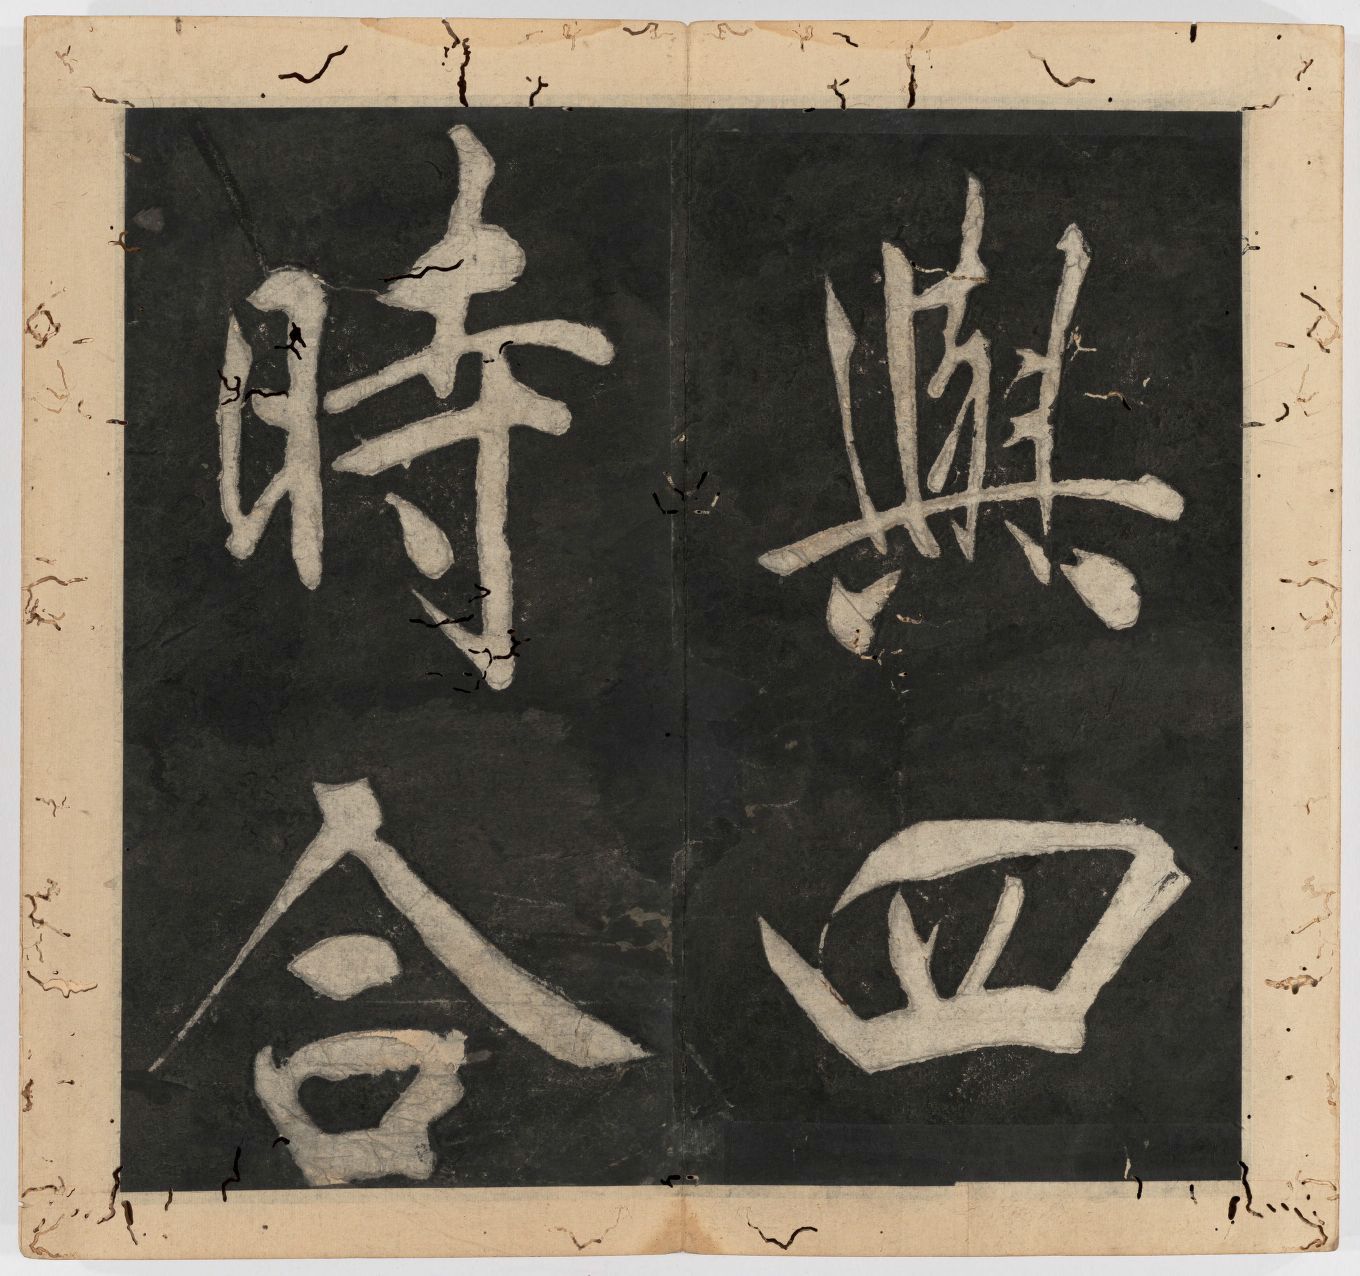 與四
時合